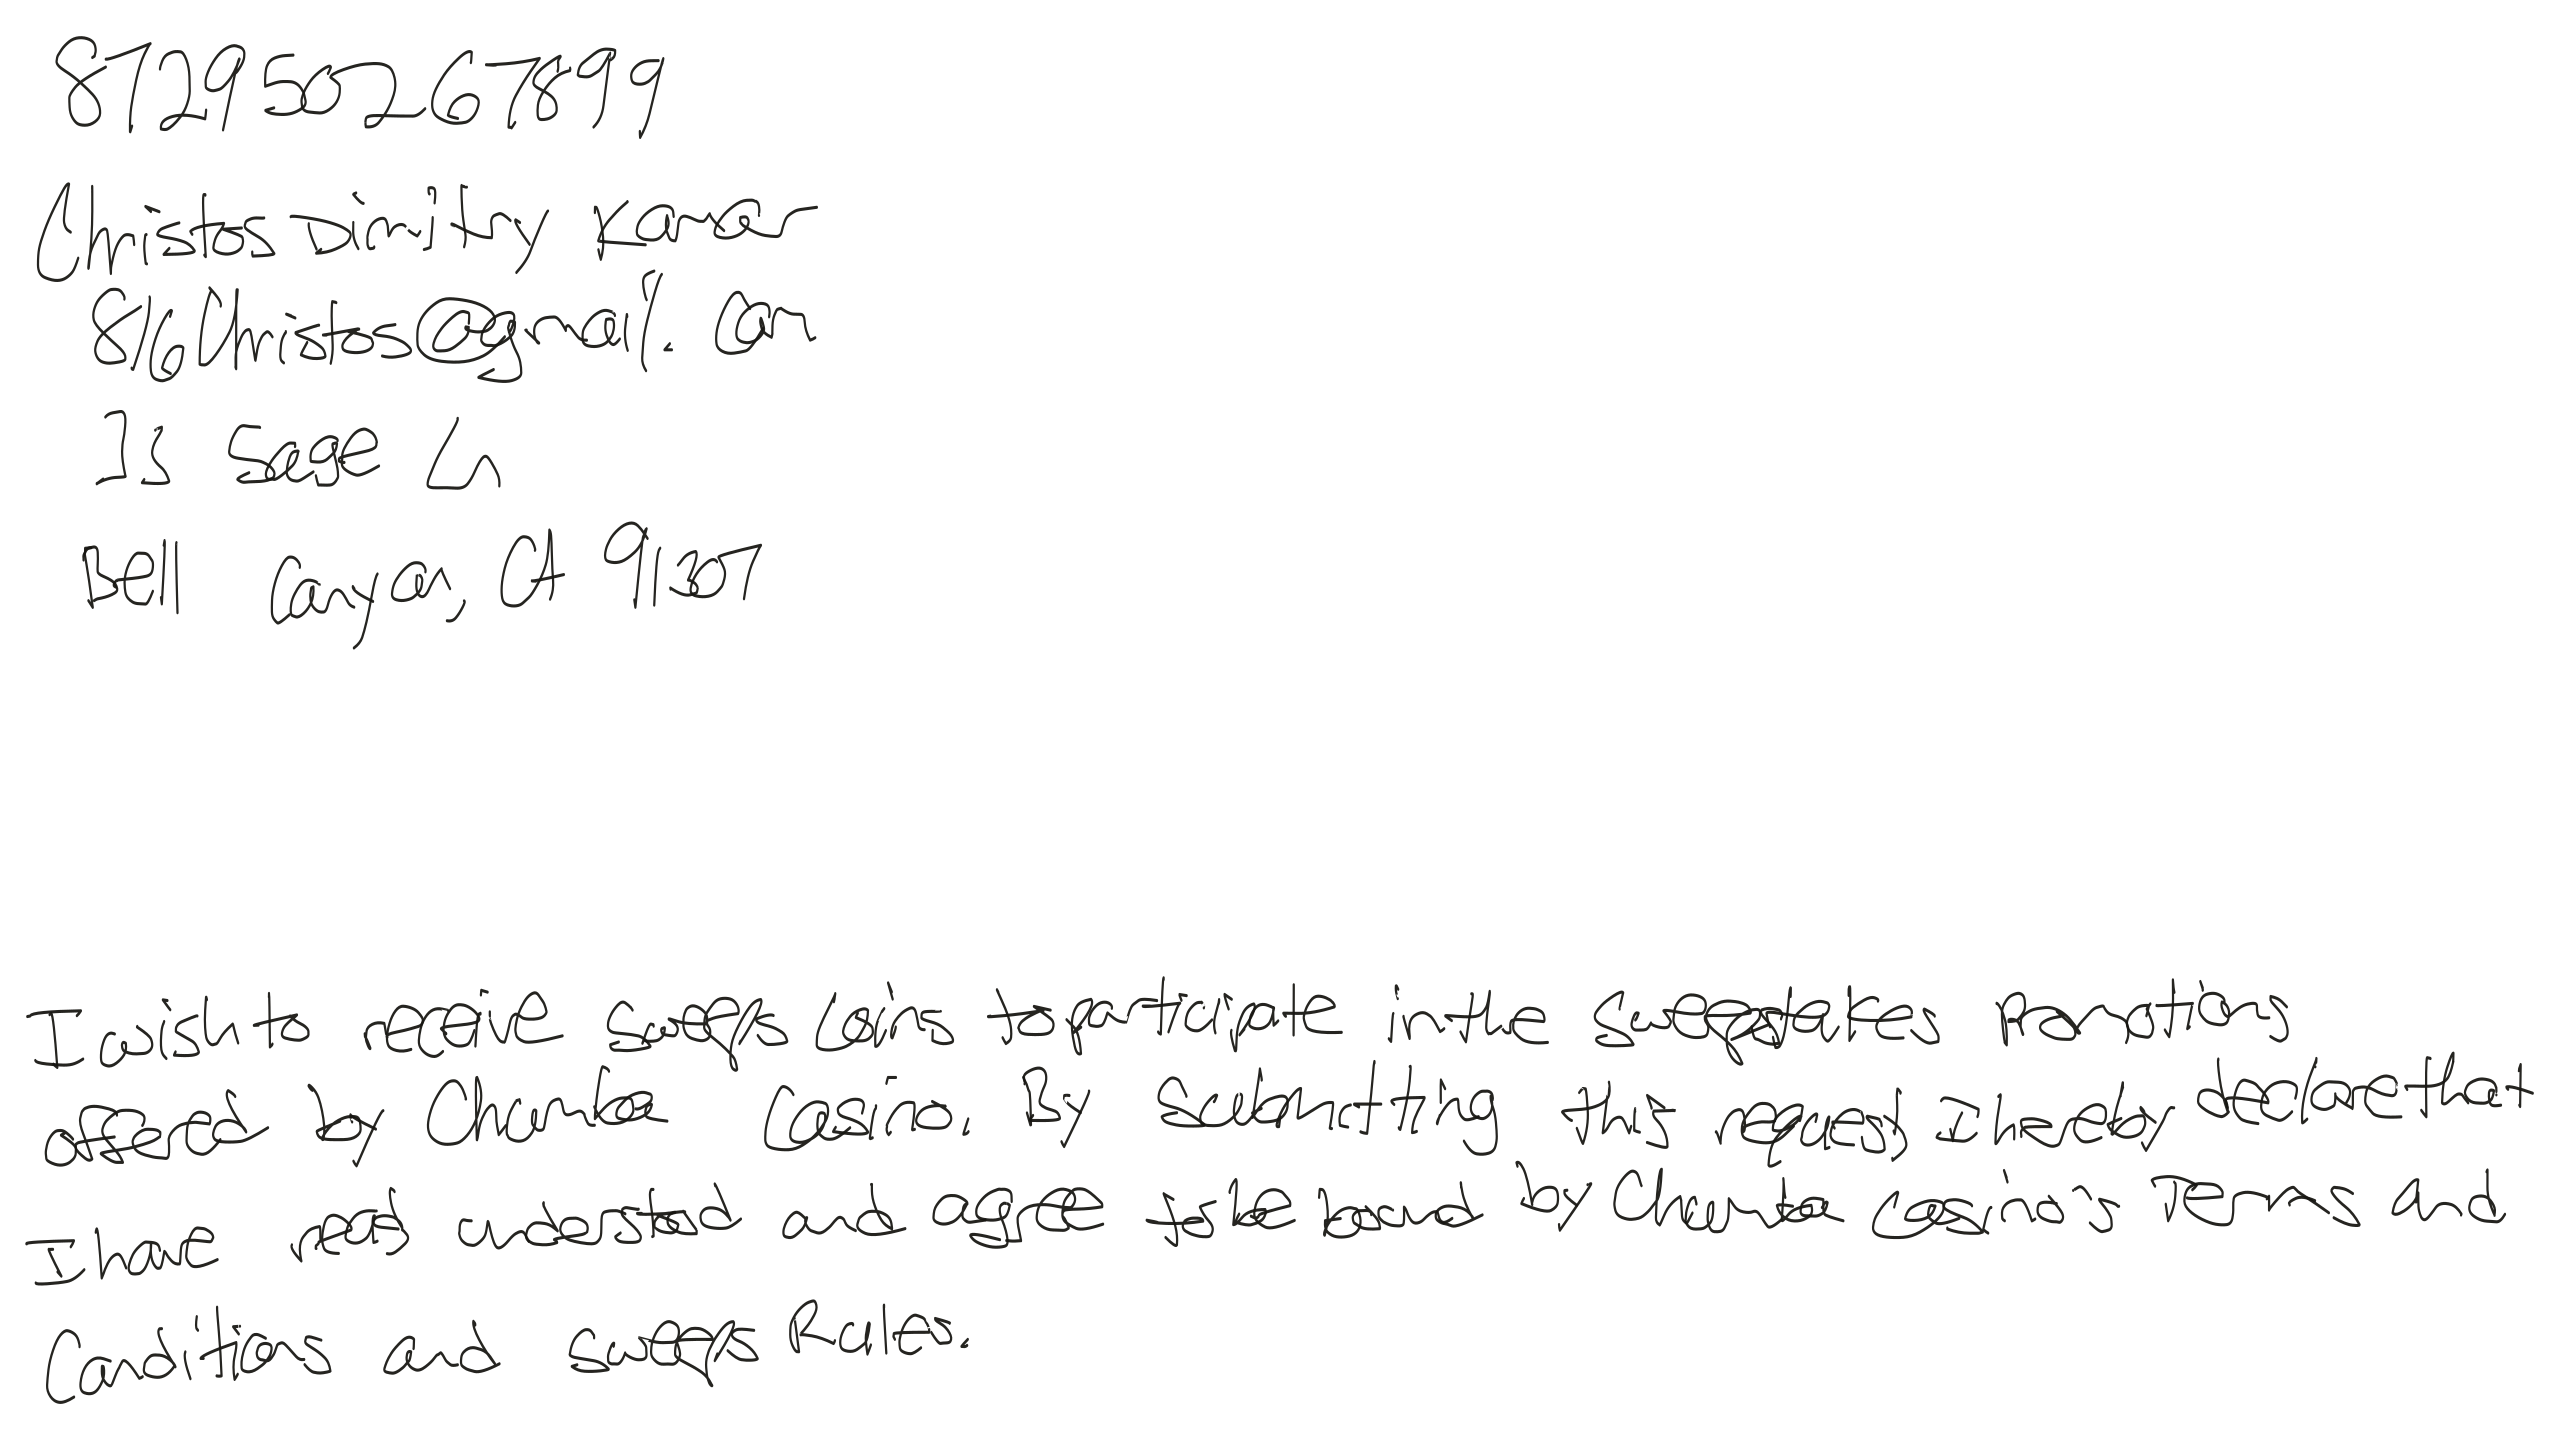 872950267899
Christos Dimitry Kamar
816Christos@gmail.com
15 Sage Ln
Bell Canyon, CA 91307
I wish to receive sweeps coins to participate in the sweepstakes Promotions
offered by Chumba Casino. By submitting this request, I hereby declare that
I have read, understood and agree to be bound by Chumba Casino's Terms and
Conditions and sweeps Rules.